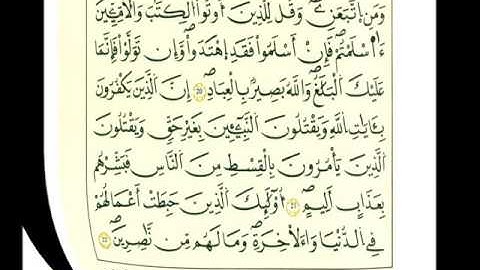 وَمَنِ اِتَّبَعَنِۦ وَقُل لِّلذِينَ أُوتُواْ الْكِتَٰبَ وَالْأُمِّيِّـۧنَ
ءَآسْلَمْتُمْ فَإِنْ أَسْلَمُواْ فَقَدِ اِهْتَدَواْ وَّإِن تَوَلَّوْاْ فَإِنَّمَا
عَلَيْكَ الْبَلَٰغُ وَاللَّهُ بَصِيرٌۢ بِالْعِبَادِ ٢٠ إِنَّ الذِينَ يَكْفُرُونَ
بِـَٔايَٰتِ اللَّهِ وَيَقْتُلُونَ النَّبِيٓـِٕينَ بِغَيْرِ حَقٍّ وَيَقْتُلُونَ
الذِينَ يَامُرُونَ بِالْقِسْطِ مِنَ النَّاسِ فَبَشِّرْهُم
بِعَذَابٍ اَلِيمٍ ٢١ اُوْلَٰٓئِكَ الذِينَ حَبِطَتَ اَعْمَٰلُهُمْ
فِي الدُّنْيَا وَالَاخِرَةِ وَمَا لَهُم مِّن نَّٰصِرِينَ ٢٢